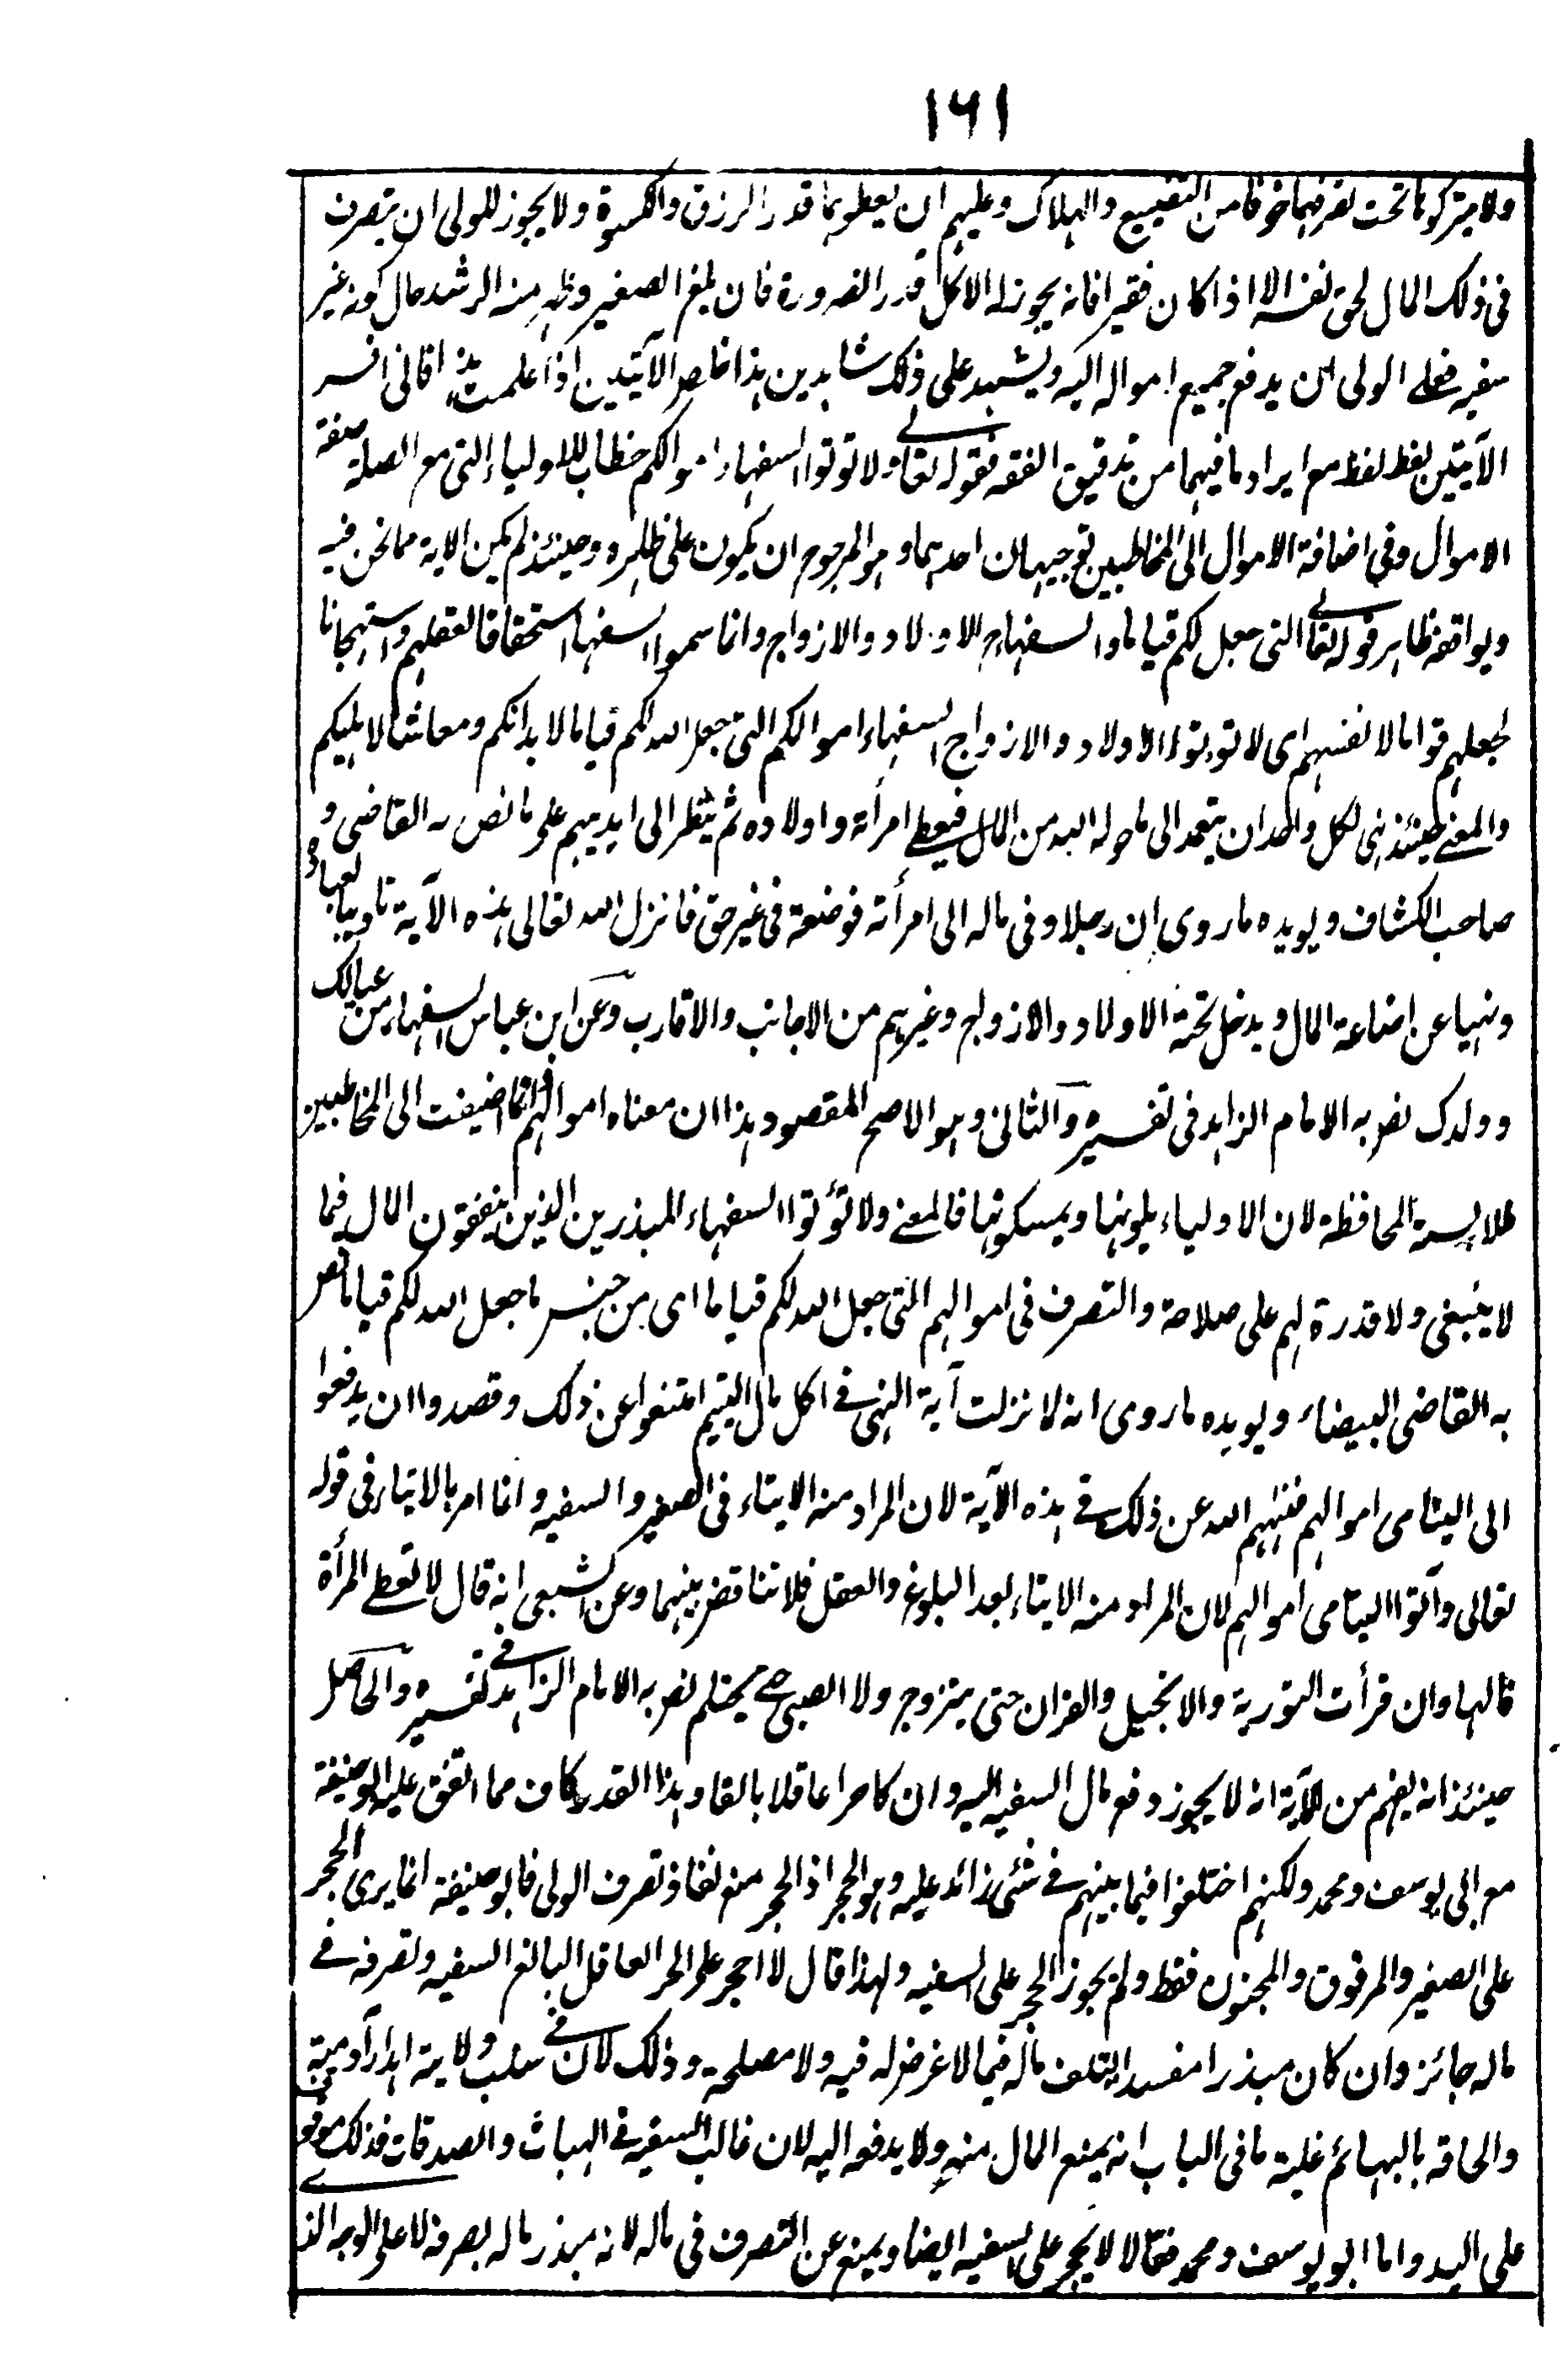 ١٦١
ولا يتركوها تحت تصرفهما خوفا من التضييع والهلاك وعليهم ان يعطوهما قدر الرزق والكسوة ولا يجوز للولى ان يتصرف
فى ذلك المال لحق نفسه الا اذا كان فقيرا فانه يجوز له الاكل قدر الضرورة فان بلغ الصغير وظهر منه الرشد حال كونه غير
سفيه فعلى الولى ان يدفع جميع امواله اليه ويشهد على ذلك شاهدين هذا خلاصة الآيتين اذا علمت هذا فانى افسر
الآيتين لفظ لفظ مع ايراد ما فيهما من تدقيق الفقه فقوله تعالى ولا توتوا السفهاء اموالكم خطاب للاولياء التى مع الصلة صفة
الاموال وفى اضافة الاموال الى المخاطبين توجيهان احدهما وهو المرجوح ان يكون على ظاهره وحينئذ لم يكن الاية مما نحن فيه
ويوافقه ظاهر قوله تعالى التى جعل لكم قياما والسفهاء هم الاولاد والازواج وانما سموا السفهاء استخفافا لعقلهم واستهجانا
لجعلهم قواما لانفسهم اى لا توتوا الاولاد والازواج السفهاء اموالكم التى جعل الله لكم قياما لابدانكم ومعاشا لاهليكم
والمعنى حينئذ نهى لكل واحد ان يتعمد الى ما خوله الله من المال فيعطى امرأته واولاده ثم ينظر الى ايديهم على ما نص به القاضى و
صاحب الكشاف ويويده ما روى ان رجلا دفع ماله الى امرأته فوضعته فى غير حق فانزل الله تعالى هذه الآية تاديبا لعباده
ونهيا عن اضاعة المال ويدخل تحته الاولاد والازواج وغيرهم من الاجانب والاقارب وعن ابن عباس السفهاء من عيالك
وولدك نص به الامام الزاهد فى تفسيره والثانى وهو الاصح المقصود هذا ان معناه اموالهم وانما اضيفت الى المخاطبين
لملابسة المحافظة لان الاولياء يلونها ويمسكونها فالمعنى ولا تؤتوا السفهاء المبذرين الذين ينفقون المال فيما
لا ينبغى ولا قدرة لهم على صلاحه والتصرف فى اموالهم التى جعل الله لكم قياما اى من جنس ما جعل الله لكم قياما نص
به القاضى البيضاء ويويده ما روى انه لما نزلت آية النهى فى اكل مال اليتيم امتنعوا عن ذلك وقصدوا ان يدفعوا
الى اليتامى اموالهم فنهاهم الله عن ذلك فى هذه الآية لان المراد منه الايتاء فى الصغير والسفيه وانما امر بالايتاء فى قوله
تعالى وآتوا اليتامى اموالهم لان المراد منه الايتاء بعد البلوغ والعقل فلا تناقض بينهما وعن الشعبى انه قال لا تعطى المرأة
مالها وان قرأت التورية والانجيل والقران حتى يتزوج ولا الصبى حتى يحتلم نص به الامام الزاهد فى تفسيره والحاصل
حينئذ انه يفهم من الآية انه لا يجوز دفع مال السفيه اليه وان كان حرا عاقلا بالغا وهذا القدر كاف مما اتفق عليه ابو حنيفة
مع ابى يوسف ومحمد ولكنهم اختلفوا فيما بينهم فى شئ زائد عليه وهو الحجر اذ الحجر منع نفاذ تصرف الولى فابو حنيفة انما يرى الحجر
على الصغير والمرقوق والمجنون فقط ولم يجوز الحجر على السفيه ولهذا قال لا احجر على الحر العاقل البالغ السفيه وتصرفه فى
ماله جائز وان كان مبذرا مفسدا يتلف ماله فيما لا غرض له فيه ولا مصلحة وذلك لان فى سلب ولايته اهدار آدميته
والحاقه بالبهائم غاية ما فى الباب انه يمنع المال منه ولا يدفع اليه لان غالب السفيه فى الهبات والصدقات فذلك موقوف
على اليد واما ابو يوسف ومحمد فقالا لا يحجر على السفيه ايضا ويمنع عن التصرف فى ماله لانه مبذر ماله بصرفه لا على الوجه الذى